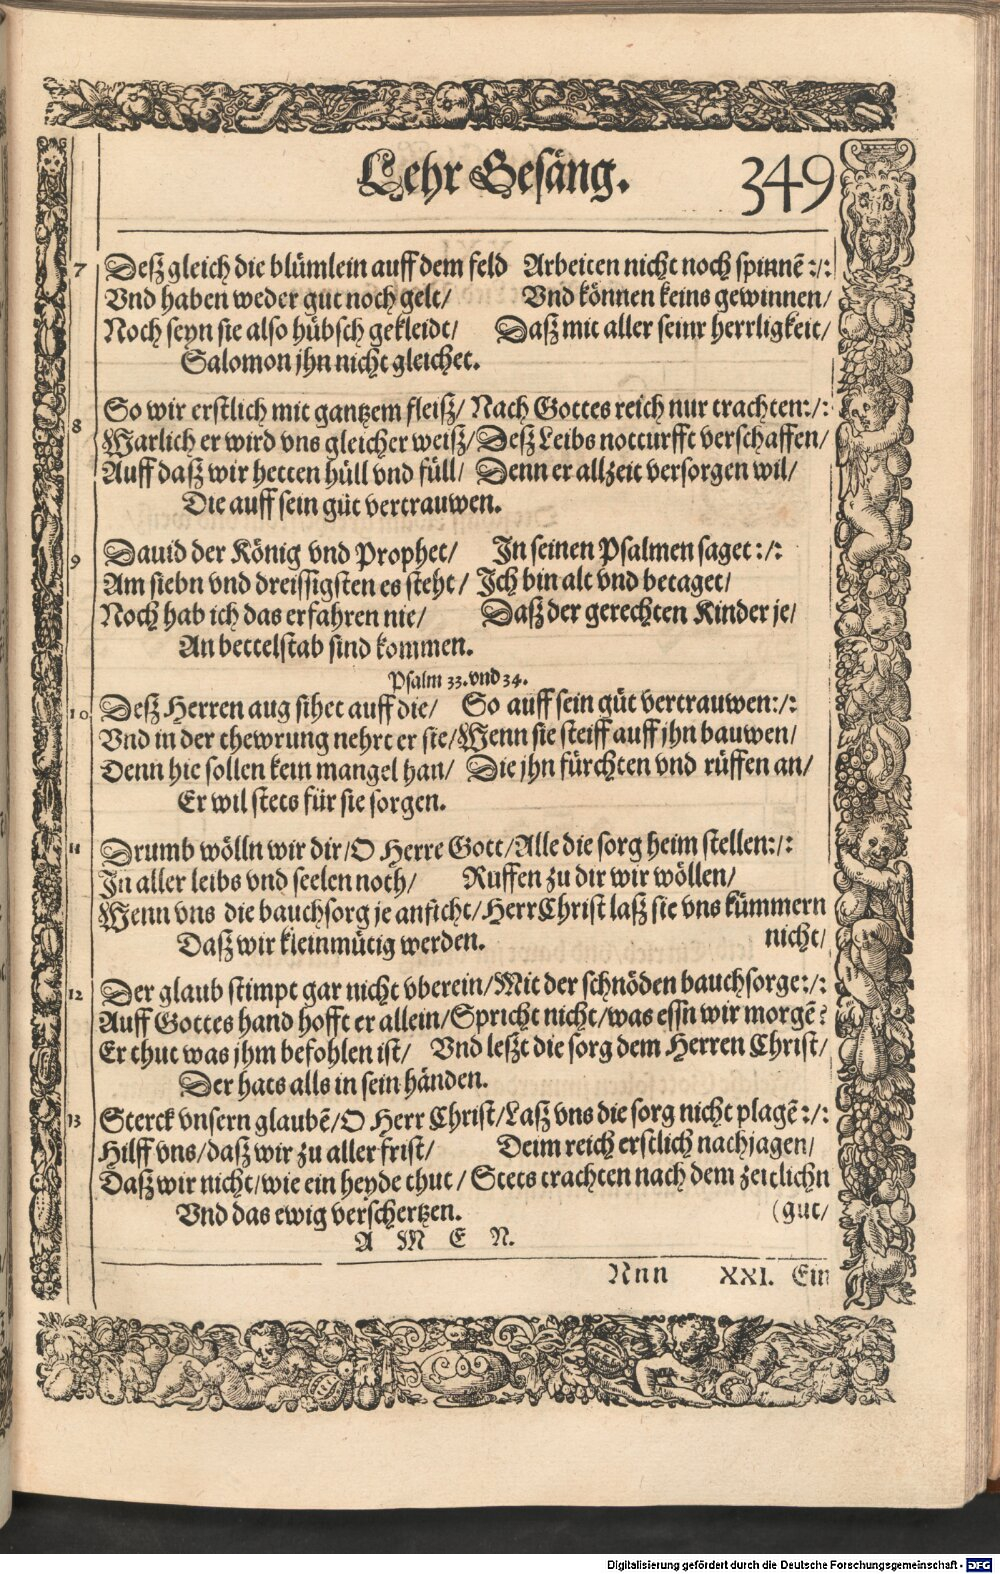 Lehr Gesäng. 349
7 Deß gleich die blümlein auff dem feld Arbeiten nicht noch spinnē :/:
Vnd haben weder gut noch gelt/ Vnd können keins gewinnen/
Noch seyn sie also hübsch gekleidt/ Daß mit aller seinr herrligkeit/
Salomon jhn nicht gleichet.
8 So wir erstlich mit gantzem fleiß/ Nach Gottes reich nur trachten:/:
Warlich er wird vns gleicher weiß/ Deß Leibs notturfft verschaffen/
Auff daß wir hetten hüll vnd füll/ Denn er allzeit versorgen wil/
Die auff sein güt vertrauwen.
9 Dauid der König vnd Prophet/ In seinen Psalmen saget :/:
Am siebn vnd dreissigsten es steht/ Ich bin alt vnd betaget/
Noch hab ich das erfahren nie/ Daß der gerechten Kinder je/
An bettelstab sind kommen.
Psalm 33. vnd 34.
10 Deß Herren aug sihet auff die/ So auff sein güt vertrauwen:/:
Vnd in der thewrung nehrt er sie/ Wenn sie steiff auff jhn bauwen/
Denn hie sollen kein mangel han/ Die jhn fürchten vnd rüffen an/
Er wil stets für sie sorgen.
11 Drumb wölln wir dir/ O Herre Gott/ Alle die sorg heim stellen:/:
In aller leibs vnd seelen noth/ Ruffen zu dir wir wöllen/
Wenn vns die bauchsorg je anficht/ Herr Christ laß sie vns kümmern
Daß wir kleinmütig werden. nicht/
12 Der glaub stimpt gar nicht vberein/ Mit der schnöden bauchsorge:/:
Auff Gottes hand hofft er allein/ Spricht nicht/ was essn wir morgē?
Er thut was jhm befohlen ist/ Vnd leßt die sorg dem Herren Christ/
Der hats alls in sein händen.
13 Sterck vnsern glaubē/ O Herr Christ/ Laß vns die sorg nicht plagē :/:
Hilff vns/ daß wir zu aller frist/ Deim reich erstlich nachjagen/
Daß wir nicht/ wie ein heyde thut/ Stets trachten nach dem zeitlichn
Vnd das ewig verschertzen. (gut/
A M E N.
Nnn XXI. Ein
Digitalisierung gefördert durch die Deutsche Forschungsgemeinschaft - DFG